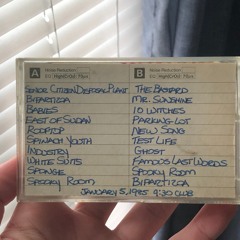 A Noise Reduction
EQ High(CrO2) 70μs
SENIOR CITIZEN DISPOSAL PLANT
BIPARTIZOA
BABIES
EAST OF SUDAN
ROOFTOP
SPINACH YOUTH
INDUSTRY
WHITE SUITS
SPONGE
SPOOKY ROOM
B Noise Reduction
EQ High(CrO2) 70μs
THE BASTARD
MR. SUNSHINE
10 WITCHES
PARKING LOT
NEW SONG
TEST LIFE
GHOST
FAMOUS LAST WORDS
SPOOKY ROOM
BIPARTIZOA
JANUARY 5, 1985 9:30 CLUB